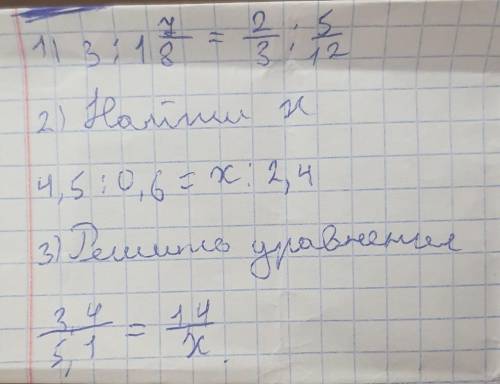 1) 3 : 1 7/8 = 2/3 : 5/12
2) Найти x
4,5 : 0,6 = x : 2,4
3) Решить уравнения
3,4/5,1 = 14/x